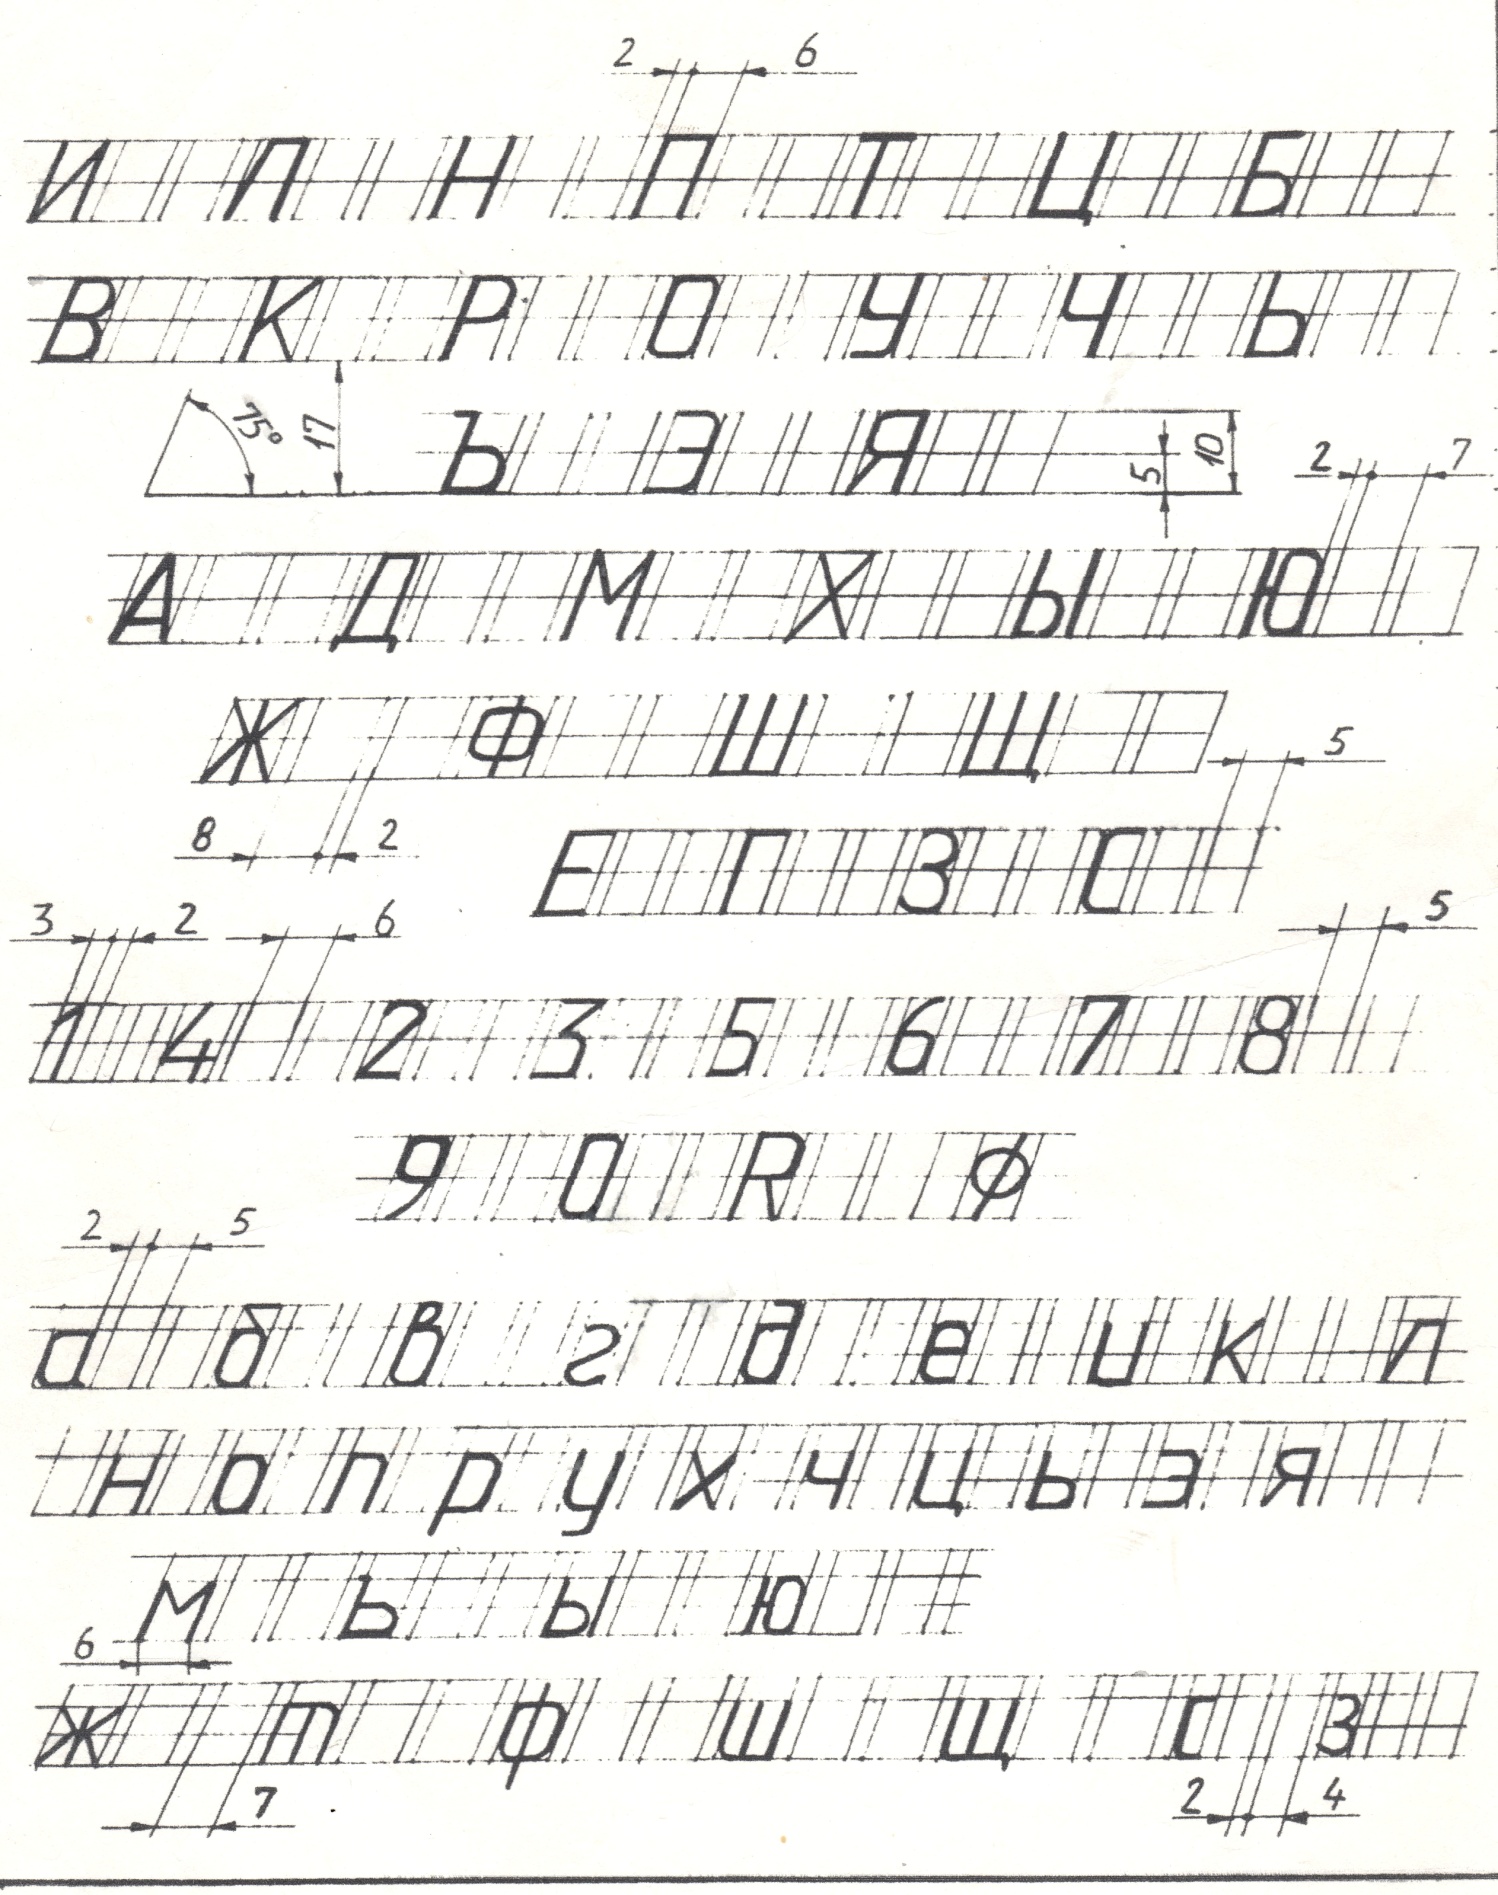 2 6
И Л Н П Т Ц Б
В К Р О У Ч Ь
75° 17 Ъ Э Я 5 10
2 7
А Д М Х Ы Ю
Ж Ф Ш Щ
5
8 2
Е Г З С
3 2 6 5
1 4 2 3 5 6 7 8
9 0 R Ø
2 5
а б в г д е и к л
н о п р у х ч ц ь э я
м ъ ы ю
6
ж т ф ш щ с з
7 2 4